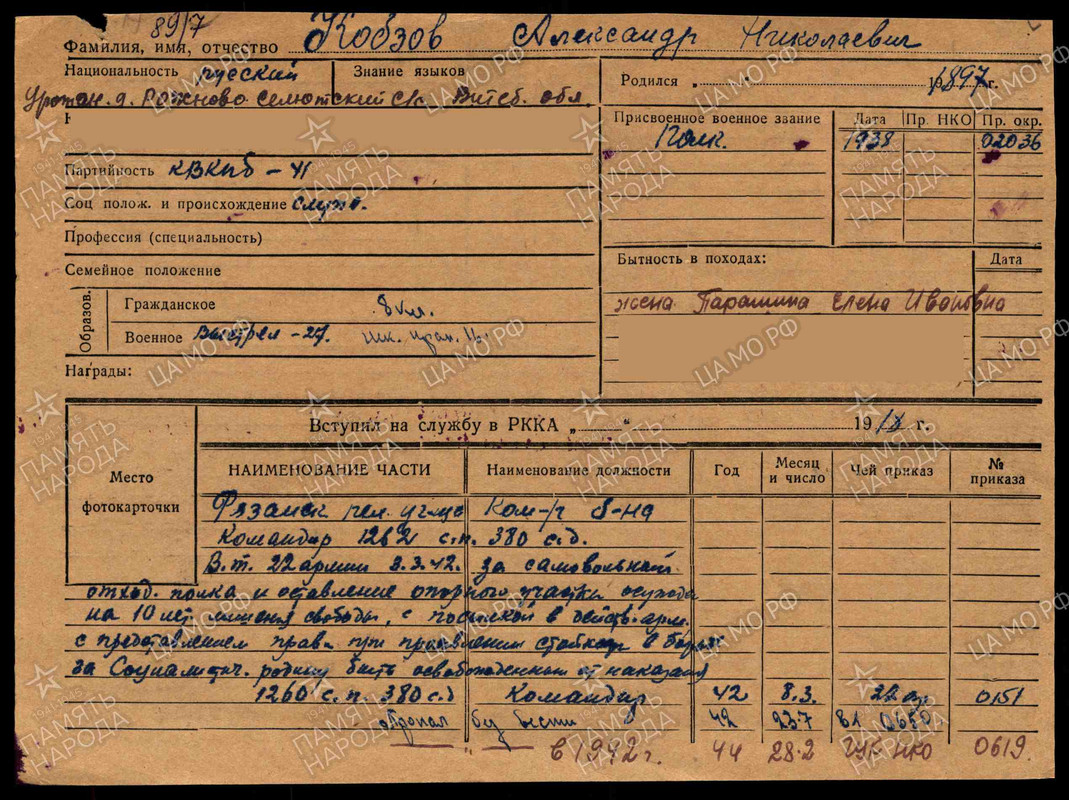 89/7
Фамилия, имя, отчество Кобзов Александр Николаевич
Национальность русский Знание языков
Родился „ " 1897 г.
Урожен. д. Рожново Селютский с/с Витеб. обл.
Присвоенное военное звание Дата Пр. НКО Пр. окр.
Полк. 1938 02036
Партийность КВКПб – 41
Соц полож. и происхождение служ.
Профессия (специальность)
Семейное положение
Бытность в походах: Дата
жена Парашина Елена Ивановна
Образов.
Гражданское 8 кл.
Военное Выстрел – 27.
Награды:
Вступил на службу в РККА „ " 1918 г.
Место
фотокарточки
НАИМЕНОВАНИЕ ЧАСТИ Наименование должности Год Месяц и число Чей приказ № приказа
Рязанск училище Ком–р б–на
Командир 1262 с.п. 380 с.д.
В.т. 22 армии 3.3.42. за самовольный
отход. полка и оставление опорного участка осужден
на 10 лет лишения свободы, с посылкой в действ. арм.
с представлением прав. при проявлении стойкости в боях
за Социалистич. родину быть освобожденным от наказания
1260 с.п. 380 с.д Командир 42 8.3. 22 а. 0151
пропал без вести 42 23.7
— „ — в 1942 г. 44 28.2 ГУК НКО 0619.
ПАМЯТЬ НАРОДА
1941-1945
ЦА МО РФ